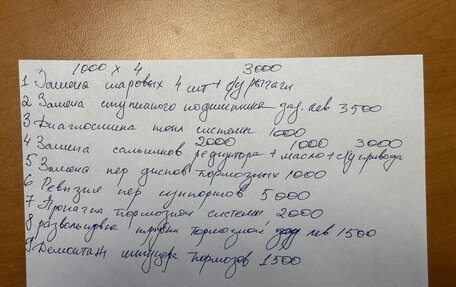 1000 x 4 3000
1 Замена шаровых 4 шт + с/у рычаги
2 Замена ступичного подшипника зад. лев 3500
3 Диагностика топл системы 1000
2000 1000 3000
4 Замена сальников редуктора + масло + с/у привода
5 Замена пер дисков тормозных 1000
6 Ревизие пер суппортов 5000
7 Прокачка тормозной системы 2000
8 развольцовка трубки тормозной зад лев 1500
9 Демонтаж штуцера тормозов 1500